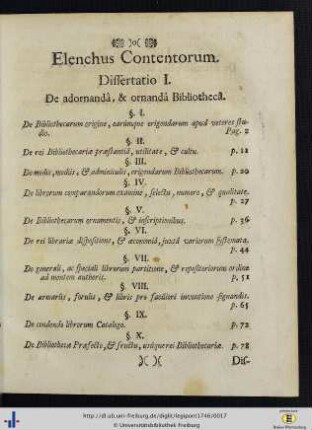 Elenchus Contentorum.
Dissertatio I.
De adornandâ, & ornandâ Bibliothecâ.
§. I.
De Bibliothecarum origine, earúmque erigendarum apud veteres stu-
dio. Pag. 2
§. II.
De rei Bibliothecariæ præstantiâ, utilitate, & cultu. p. 12
§. III.
De modis, mediis, & adminiculis, erigendarum Bibliothecarum. p. 20
§. IV.
De librorum comparandorum examine, selectu, numero, & qualitate.
p. 27
§. V.
De Bibliothecarum ornamentis, & inscriptionibus. p. 36
§. VI.
De rei librariæ dispositione, & œconomiâ, juxtà variorum systemata.
p. 44
§. VII.
De generali, ac speciali librorum partitione, & repositoriorum ordine
ad mentem authoris. p. 51
§. VIII.
De armariis, forulis, & libris pro faciliori inventione signandis.
p. 65
§. IX.
De condendo librorum Catalogo. p. 72
§. X.
De Bibliothecæ Præfecto, & fructu, usúque rei Bibliothecariæ. p. 78
)( )( Dis-
http://dl.ub.uni-freiburg.de/diglit/legipont1746/0017
© Universitätsbibliothek Freiburg
Baden-Württemberg